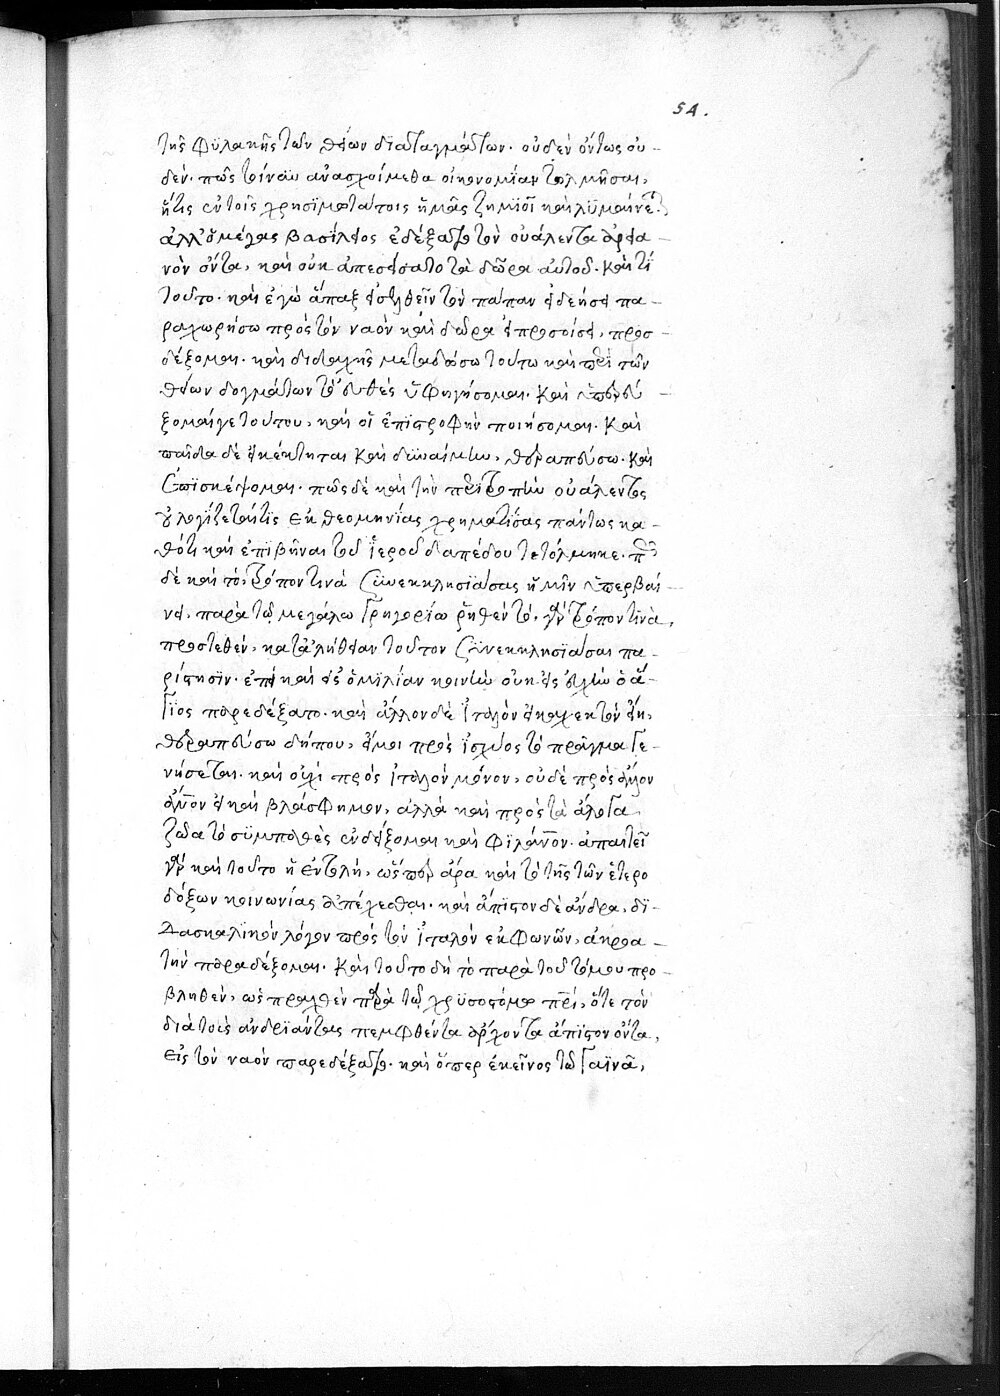 54.
τῆς φυλακῆς τῶν θείων διαταγμάτων. οὐδὲν ὄντως οὐ-
δέν. πῶς τοίνυν ἀνασχοίμεθα οἰκονομίαν τολμῆσαι,
ἥτις ἐν τοῖς χρησιμωτάτοις ἡμᾶς ζημιοῖ καὶ λυμαίνεται
ἀλλ' ὁ μέγας βασίλειος ἐδέξατο τὸν οὐάλεντα ἀρεια-
νὸν ὄντα, καὶ οὐκ ἀπεσείσατο τὰ δῶρα αὐτοῦ. καὶ τί
τοῦτο. καὶ ἐγὼ ἅπαξ εἰσελθεῖν τὸν πάπαν εἰ δεήσει πα-
ραχωρήσω πρὸς τὸν ναὸν κἂν δῶρα εἰ προσοίσει, προσ-
δέξομαι. καὶ διδαχῆς μεταδώσω τούτω καὶ περὶ τῶν
θείων δογμάτων τὸ εὐθὲς ὑφηγήσομαι. καὶ ὑπερεύ-
ξομαί γε τούτου, καὶ οἱ ἐπιστροφὴν ποιήσομαι. καὶ
παῖδα δὲ εἰ κέκτηται καὶ δυναίμην, θεραπεύσω. καὶ
ἐπισκέψομαι. πῶς δὲ καὶ τὴν περιτροπὴν οὐάλεντος
οὐ λογίζεταί τις ἐκ θεομηνίας χρηματίσας πάντως κα-
θότι καὶ ἐπιβῆναι τοῦ ἱεροῦ δαπέδου τετόλμηκε.
δὲ καὶ τὸ, τρόπον τινὰ συνεκκλησιάσας ἡμῖν ὑπερβαί-
νει, παρὰ τῷ μεγάλω γρηγορίω ῥηθὲν τό, γὰρ τρόπον τινὰ,
προστεθὲν, κατ' ἀλήθειαν τοῦτον συνεκκλησιάσαι πα-
ρίστησιν. ἐπεὶ καὶ εἰς ὁμιλίαν κοινὴν οὐκ εἰς εὐχὴν ὁ ἅ-
γιος παρεδέξατο. καὶ ἄλλον δὲ ἰταλὸν
θεραπεύσω δήπου, εἴ μοι πρὸς ἰσχύος τὸ πρᾶγμα γε-
νήσεται. καὶ οὐχὶ πρὸς ἰταλὸν μόνον, οὐδὲ πρὸς ἄλλον
ἄνθρωπον εἰ καὶ βλάσφημον, ἀλλὰ καὶ πρὸς τὰ ἄλογα
ζῶα τὸ συμπαθὲς ἐνδείξομαι καὶ φιλάνθρωπον. ἀπαιτεῖ
γὰρ καὶ τοῦτο ἡ ἐντολὴ, ὥσπερ ἄρα καὶ τὸ τῆς τῶν ἑτερο
δόξων κοινωνίας ἀπέχεσθαι. καὶ ἄπιστον δὲ ἄνδρα, δι-
δασκαλικὸν λόγον πρὸς τὸν ἰταλὸν ἐκφωνῶν, ἀκροα-
τὴν παραδέξομαι. καὶ τοῦτο δὴ τὸ παρὰ τοῦ τόμου προ-
βληθὲν, ὡς πραχθὲν παρὰ τῷ χρυσοστόμω πατρί, ὅτε τὸν
διὰ τοὺς ἀνδριάντας πεμφθέντα ἄρχοντα ἄπιστον ὄντα,
εἰς τὸν ναὸν παρεδέξατο. καὶ ὅπερ ἐκεῖνος τῶ γαϊνᾶ,